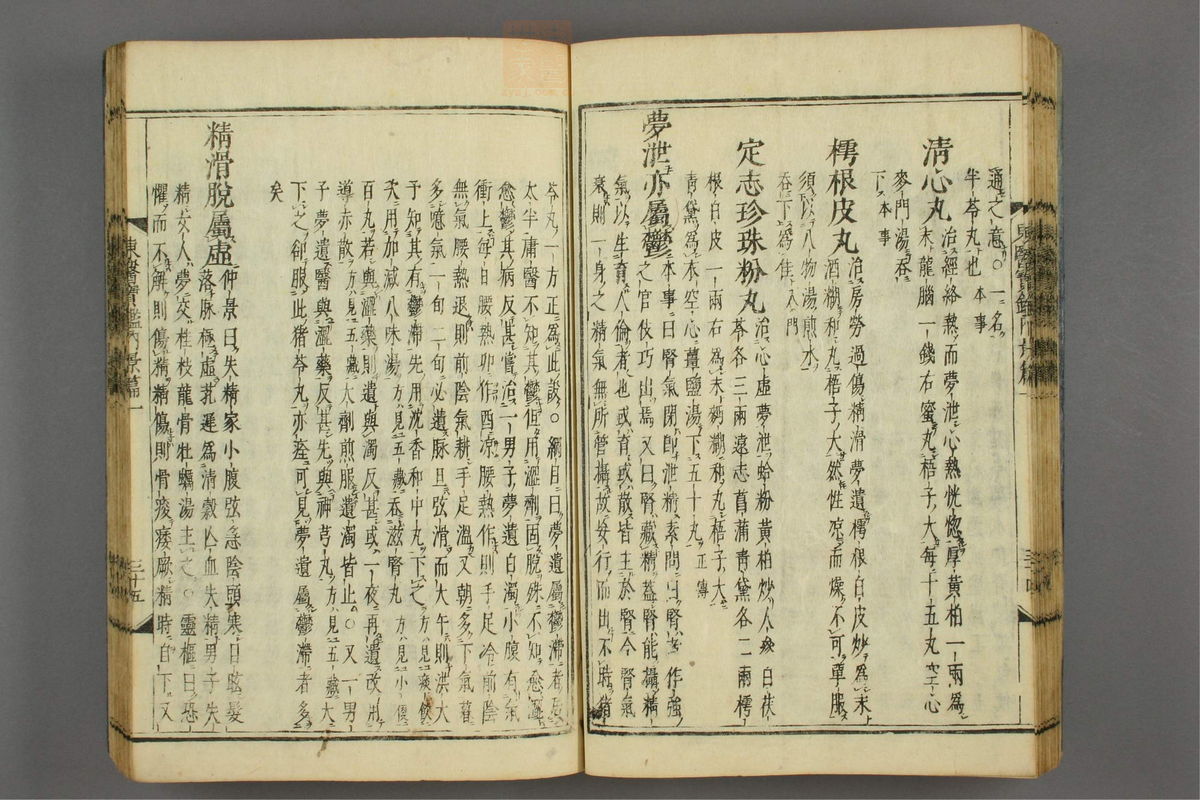 通之意○一名
半苓丸也本事
清心丸治經絡熱而夢泄心熱恍惚厚黃柏一兩爲
末龍腦一錢右蜜丸梧子大每十五丸空心
麥門湯吞
下本事
樗根皮丸治房勞過傷精滑夢遺樗根白皮炒爲末
酒糊和丸梧子大然性凉而燥不可單服
須以八物湯煎水
吞下爲佳入門
定志珍珠粉丸治心虛夢泄蛤粉黃柏炒人參白茯
苓各三兩遠志菖蒲靑黛各二兩樗
根白皮一兩右爲末麪糊和丸梧子大
靑黛爲衣空心薑鹽湯下五十丸正傳
夢泄亦屬鬱本事曰腎氣閉卽泄精素問曰腎者作強
之官伎巧出焉又曰腎藏精蓋腎能攝精
氣以生育人倫者也或育或散皆主於腎今腎氣
衰則一身之精氣無所管攝故妄行而出不時猪
東醫寶鑑內景篇一
三十四
苓丸一方正爲此設○綱目曰夢遺屬鬱滯者居
太半庸醫不知其鬱但用澁劑固脫殊不知愈澁
愈鬱其病反甚嘗治一男子夢遺白濁小腹有氣
衝上每日腰熱卯作酉凉腰熱作則手足冷前陰
無氣腰熱退則前陰氣耕手足溫又朝多下氣暮
多噫氣一旬二旬必遺脉旦弦滑而大午則洪大
予知其有鬱滯先用沈香和中丸下之方見痰飮
次用加減八味湯方見五藏吞滋腎丸方見小便
百丸若與澁藥則遺與濁反甚或一夜再遺改用
導赤散方見五藏大劑煎服遺濁皆止○又一男
子夢遺醫與澁藥反甚先與神芎丸方見五藏大
下之却服此猪苓丸亦痊可見夢遺屬鬱滯者多
矣
精滑脫屬虛仲景曰失精家小腹弦急陰頭寒目眩髮
落脉極虛芤遲爲淸穀亡血失精男子失
精女人夢交桂枝龍骨牡蠣湯主之○靈樞曰恐
懼而不解則傷精精傷則骨痠痿厥精時自下又
東醫寶鑑內景篇一
三十五